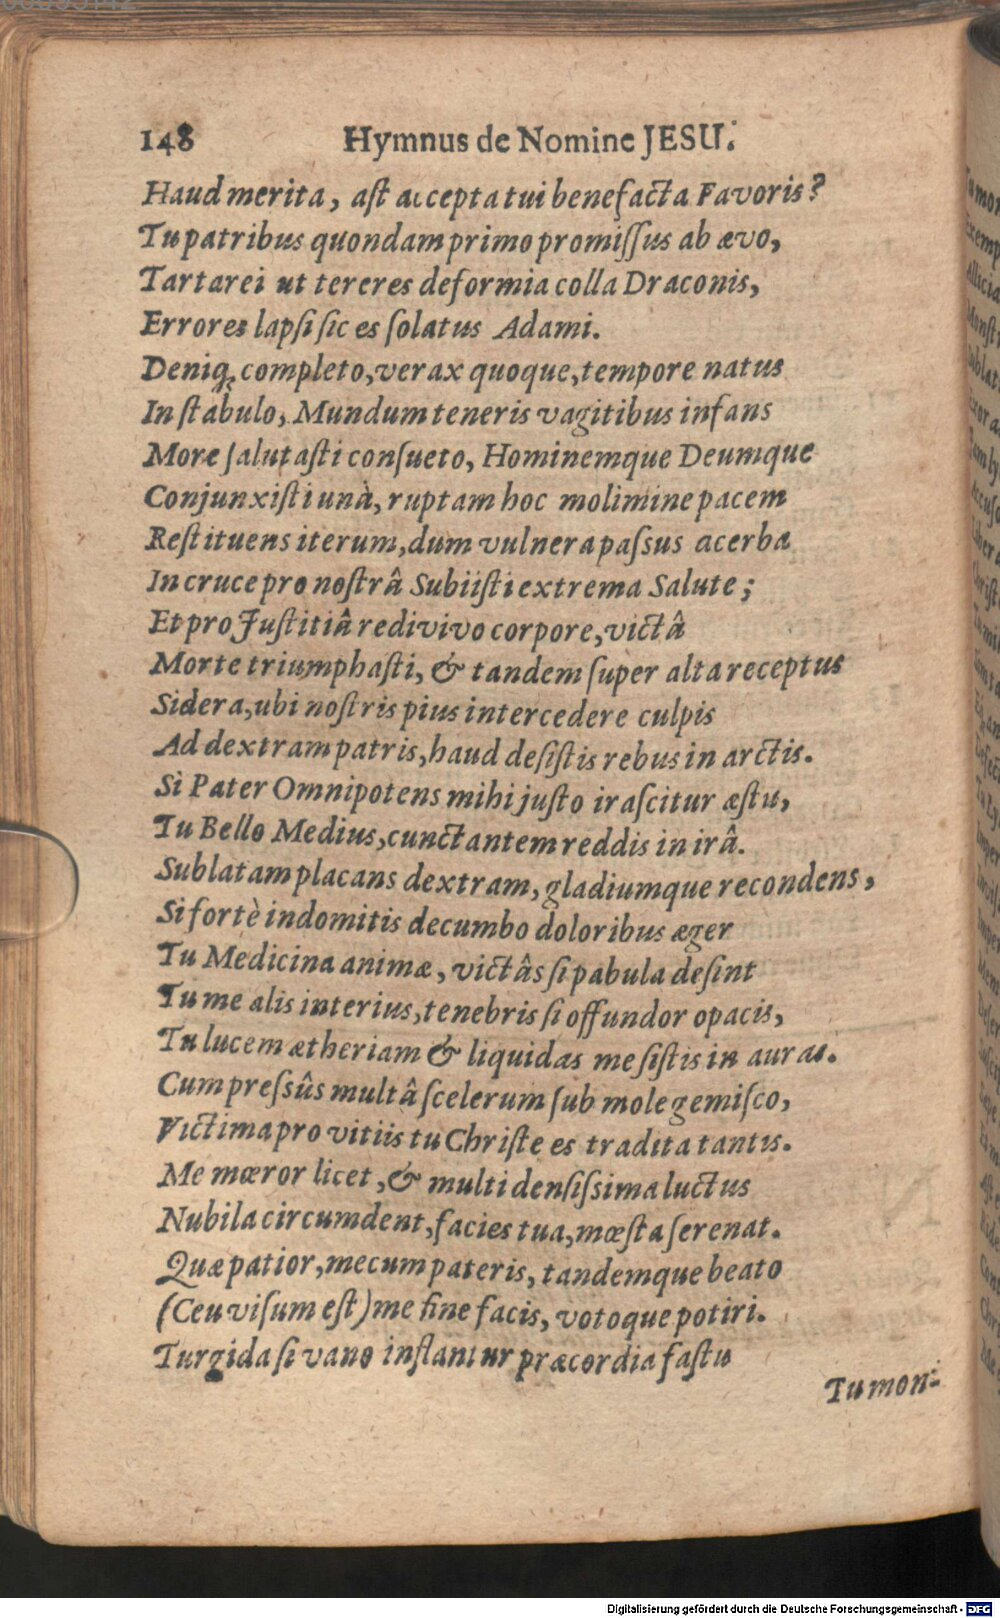 148 Hymnus de Nomine JESU.
Haud merita, aſt accepta tui benefacta Favoris?
Tu patribus quondam primo promiſſus ab ævo,
Tartarei ut tereres deformia colla Draconis,
Errores lapſi ſic es ſolatus Adami.
Deniq; completo, verax quoque, tempore natus
In ſtabulo, Mundum teneris vagitibus infans
More ſalutaſti conſueto, Hominemque Deumque
Conjunxiſti unà, ruptam hoc molimine pacem
Reſtituens iterum, dum vulnera paſsus acerba
In cruce pro noſtrâ Subiiſti extrema Salute;
Et pro Juſtitiâ redivivo corpore, victâ
Morte triumphaſti, & tandem ſuper alta receptus
Sidera, ubi noſtris pius intercedere culpis
Ad dextram patris, haud deſiſtis rebus in arctis.
Si Pater Omnipotens mihi juſto iraſcitur æſtu,
Tu Bello Medius, cunctantem reddis in irâ.
Sublatam placans dextram, gladiumque recondens,
Si fortè indomitis decumbo doloribus æger
Tu Medicina animæ, victûs ſi pabula deſint
Tu me alis interius, tenebris ſi offundor opacis,
Tu lucem ætheriam & liquidas me ſiſtis in auras.
Cum preſsûs multâ ſcelerum ſub mole gemiſco,
Victima pro vitiis tu Chriſte es tradita tantis.
Me mœror licet, & multi denſiſsima luctus
Nubila circumdent, facies tua, mœſta ſerenat.
Quæ patior, mecum pateris, tandemque beato
(Ceu viſum eſt) me fine facis, votoque potiri.
Turgida ſi vano inflantur præcordia faſtu
Tu mon-
Digitalisierung gefördert durch die Deutsche Forschungsgemeinschaft - DFG